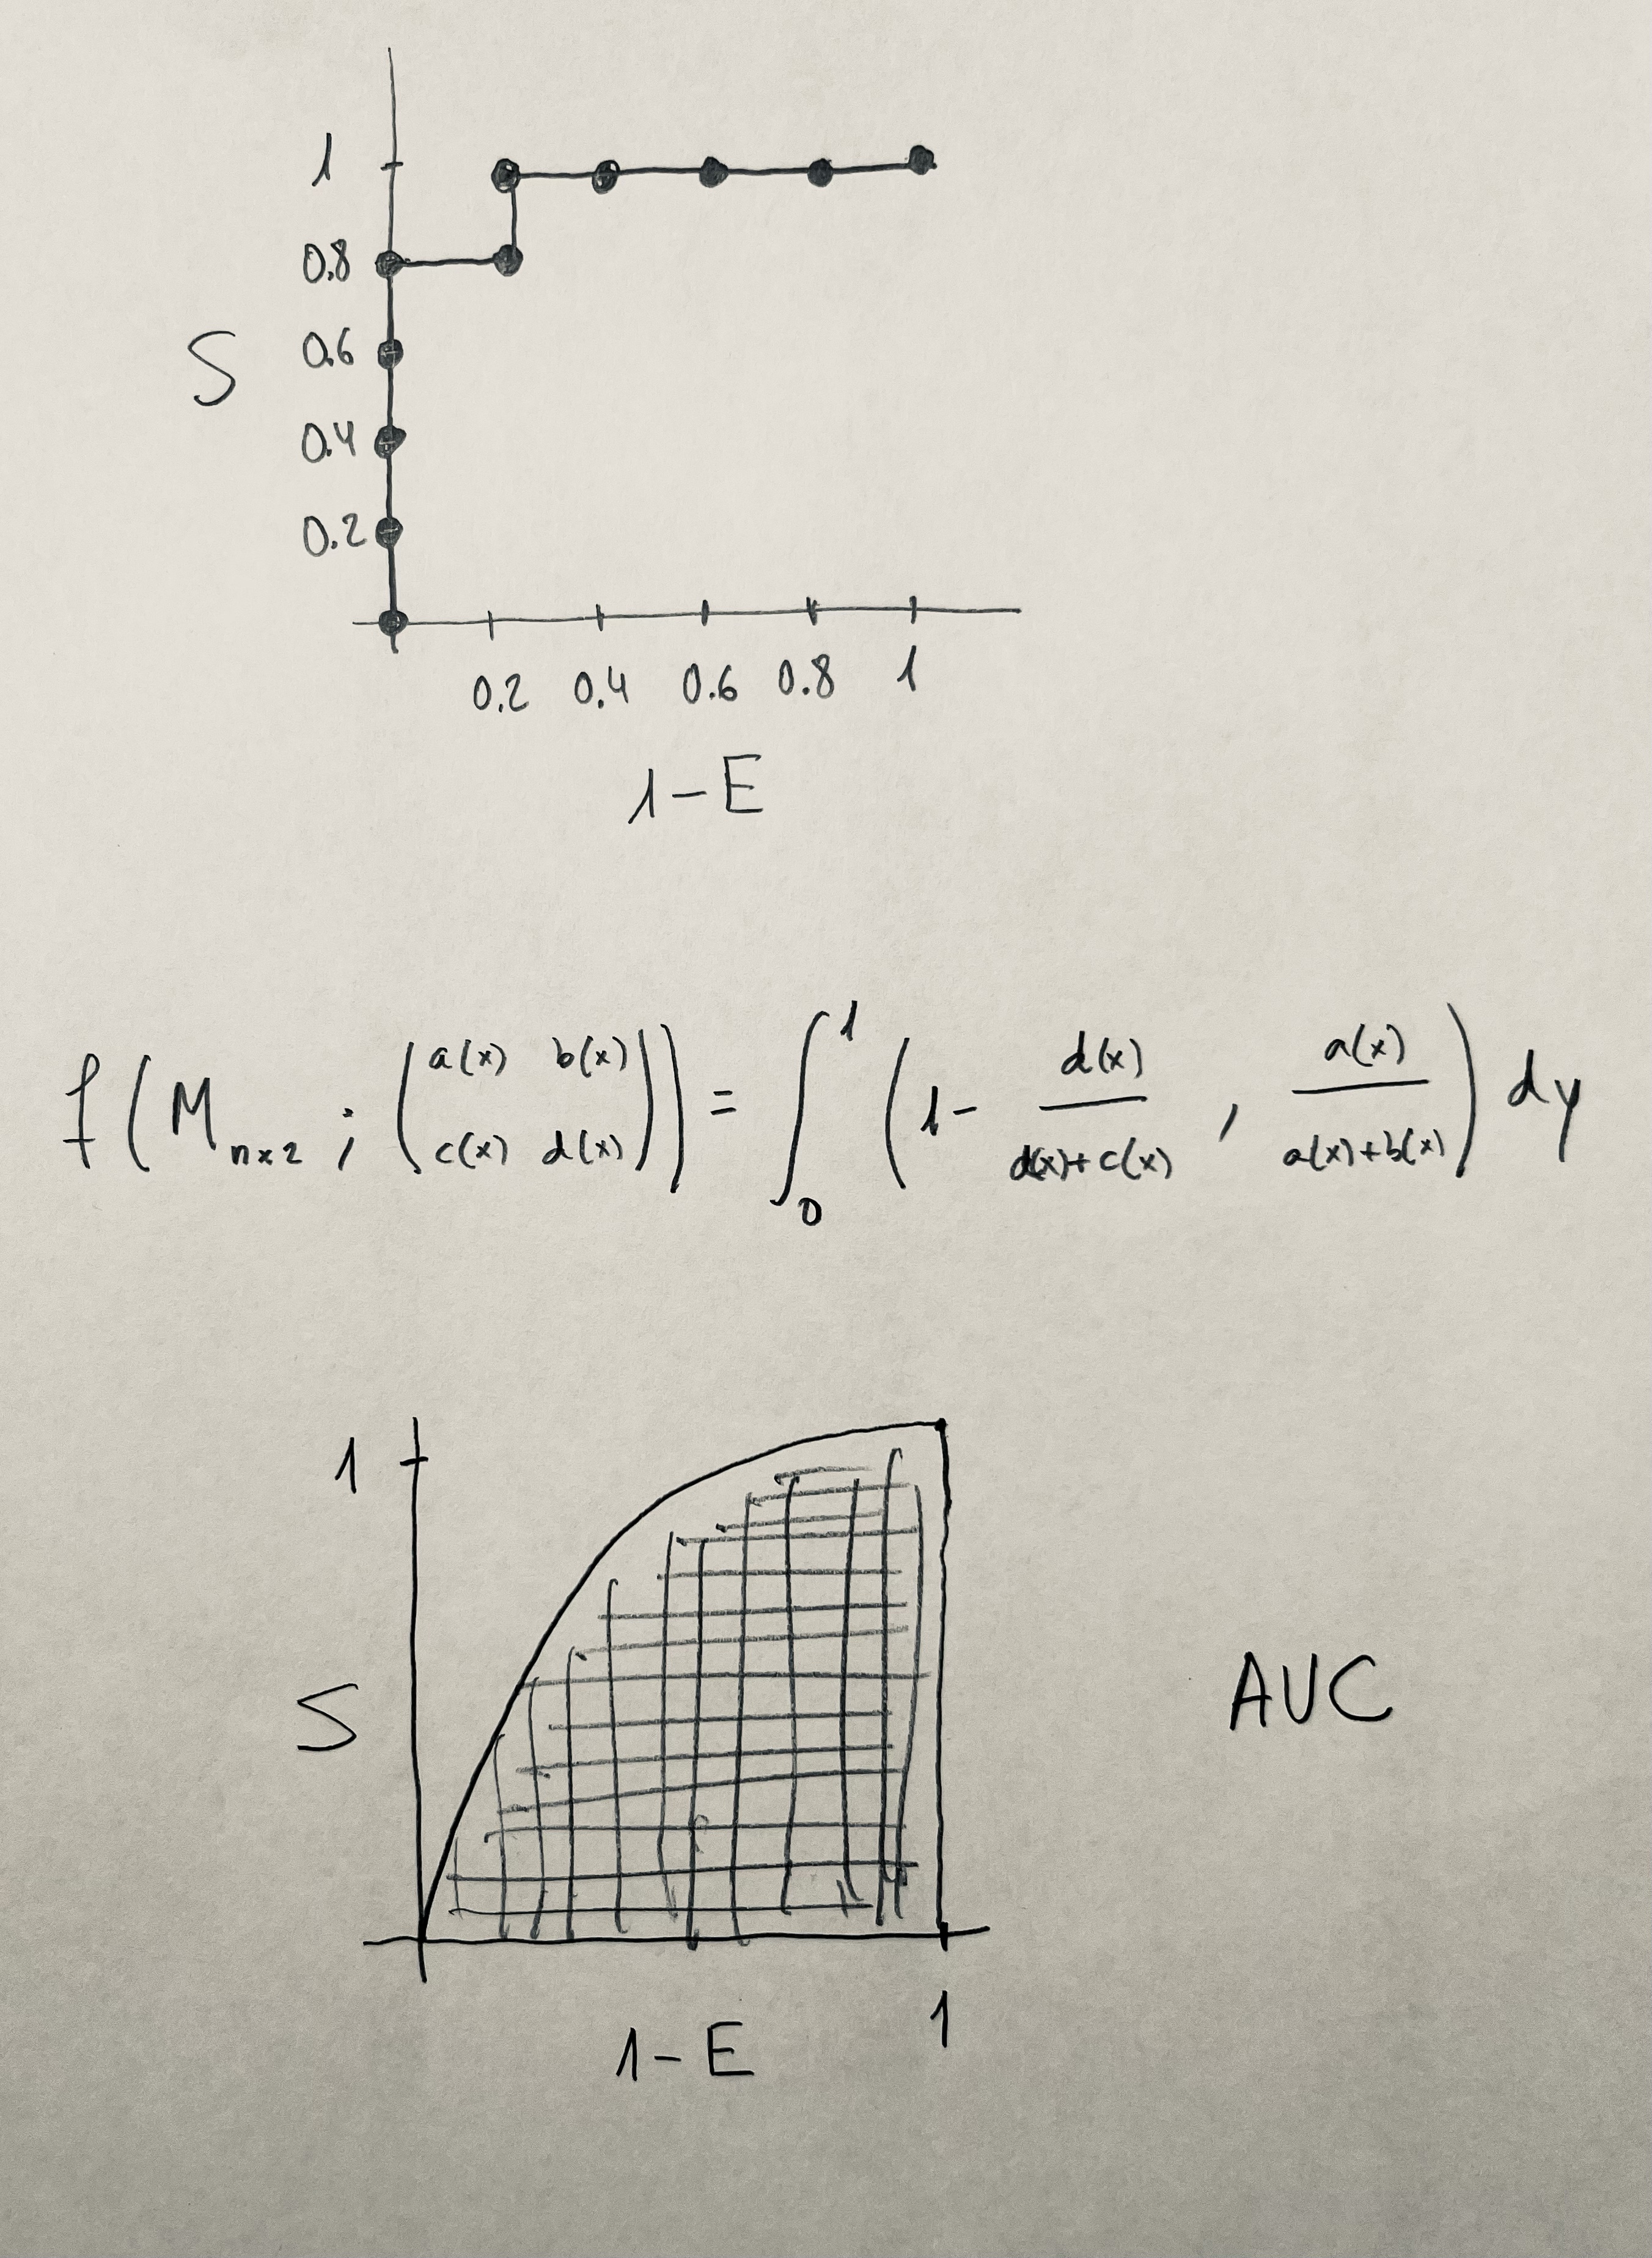 1
0.8
0.6
S
0.4
0.2
0.2 0.4 0.6 0.8 1
1-E
f(M_{n×2} ; (a(x) b(x) c(x) d(x))) = ∫_0^1 (1 - d(x)/(d(x)+c(x)) , a(x)/(a(x)+b(x))) dy
1
S
AUC
1
1-E